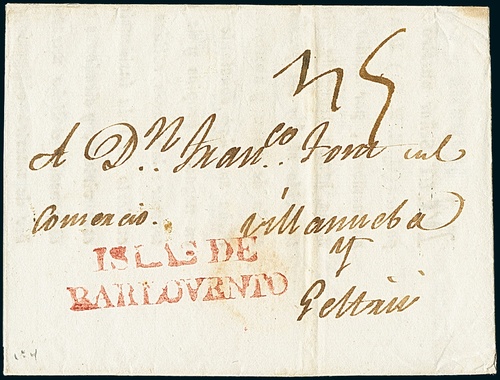 A Dⁿ. Franᶜᵒ. Font
Comercio. Villanueba
y
Geltrú
ISLAS DE
BARLOVENTO